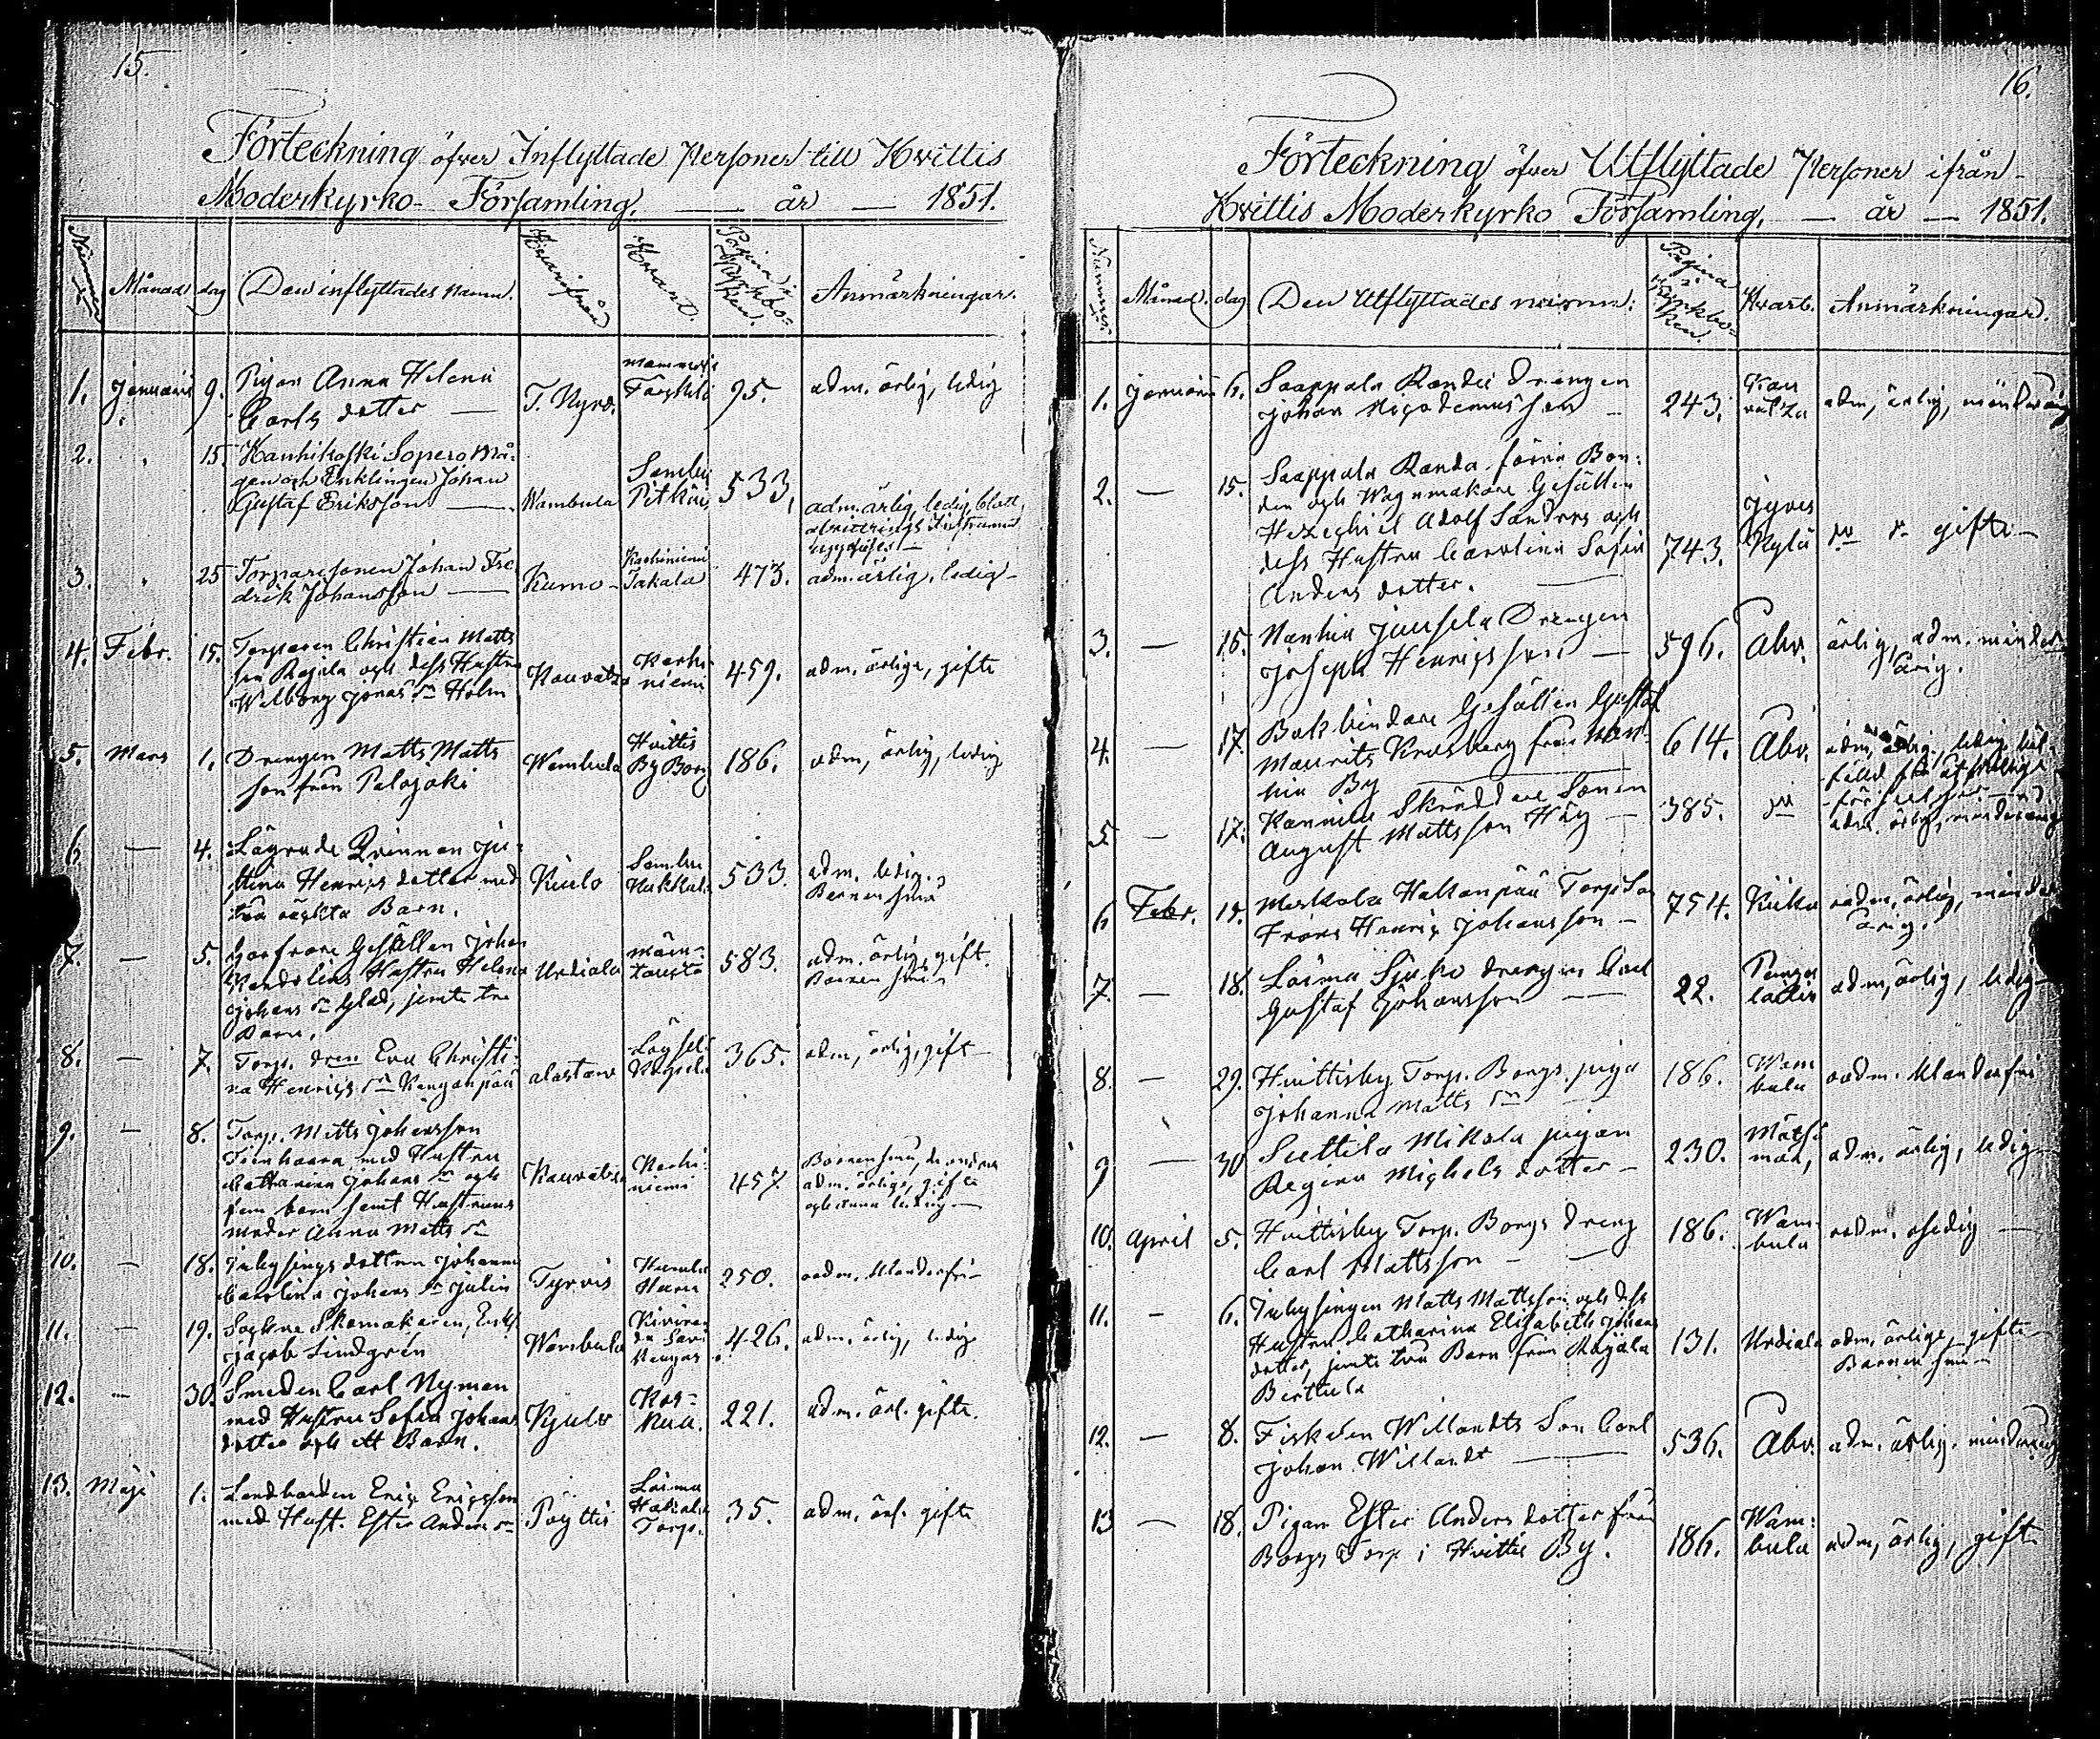 15.
Förteckning öfver Inflyttade Personer till Hvittis
Moderkyrko- Församling, — år — 1851.
Nummer Månad dag Den inflyttades namn. Hvarifrån Hvart. Pagina i Kyrkboken. Anmärkningar.
1. Januarii 9. Pigan Anna Helena
Carls dotter — T. Kyro. 95. adm. ärlig, ledig
2. 15. Kanhikoski Sopero Må-
gen och Enklingen Johan
Gustaf Eriksson — Wambula Sambu Pitkäs 533. adm. ärlig, ledig, blott
3. 25 Torparesonen Johan Fre
drik Johansson — Kumo Karhiniemi Takala 473. adm. ärlig, ledig
4. Febr. 15. Torparen Christian Matts
son Rajala och dess Hustru
Wilborg Jonas dr Holm Kauvatsa Karhi-
niemi 459. adm. ärliga, gifte
5. Mars 1. Drengen Matts Matts
son från Palojoki Wambula Hvittis
By Borg 186. adm, ärlig, ledig
6. — 4. Lägrade Qvinnan Ju-
stina Henrics dotter med
två oägta Barn. Kiulo Sambu 533. adm. ledig.
Barnen små
7. — 5. Garfvare Gesällen Johan
Hustru Helena
Johans dr Glad, jemte tre
Barn. Urdiala 583. adm. ärlig, gift.
Barnen små
8. — 7. Torp. Eva Christi-
na Henrics dr Alastaro 365. adm, ärlig, gift
9. — 8. Torp. Matts Johansson
med Hustru
Catharina Johans dr och
fem barn samt Hustruns
moder Anna Matts dr Kauvatsa Karhi-
niemi 457 Barnen små, de andra
adm. ärliga, gifte
10. — 18. Inhysings dottern Johanna
Carolina Johans dr Julin Tyrvis 250. adm. klanderfri
11. — 19. Sockne Skomakaren, Enkl.
Jacob Lindgrén Wambula 426. adm. ärlig, ledig
12. — 30. Smeden Carl Nyman
med Hustru Sofia Johans
dotter och ett Barn. Kjulo Kos-
kua. 221. adm. ärl. gifte.
13. Maji 1. Landbonden Eric Ericsson
med Hust. Ester Anders dr Pöyttis Loima
Torp. 35. adm. ärl. gifte
16.
Förteckning öfver Utflyttade Personer ifrån
Hvittis Moderkyrko Församling, — år — 1851.
Nummer Månad. dag Den Utflyttades namn. Pagina i Kyrkboken. Hvart. Anmärkningar.
1. Januarii 6. Saappala Randa Drengen
Johan Nicodemusson — 243. Kau
vatza adm, ärlig, minderårig
2. — 15. Saappala Randa förra Bon-
den och Wagnmakare Gesällen
Hezechiel Adolf Sanders och
dess Hustru Carolina Sofia
Anders dotter. 743. Jyves
Kylä do do gifte
3. — 15. Nanhia Jussela Drengen
Joseph Henricsson — 596. Åbo. ärlig, adm. minder-
årig.
4. — 17. Bokbindare Gesällen Gustaf
Maurits Krusberg från Nan-
hia By 614. Åbo.
5 — 17. Kannila Skräddare Sonen
August Mattsson Häg — 385. do adm. ärlig, minderårig
6 Febr. 15. Meskala Haltanpää Torp. Son
Frans Henric Johansson — 754. Kiika adm, ärlig, minder-
årig.
7. — 18. Loima Sjuho Drengen Carl
Gustaf Johansson — 22. adm, ärlig, ledig
8. — 29. Hvittisby Torp. Borgs piga
Johanna Matts dr 186. Wam
bula adm. klanderfri
9 — 30 Suttila Mikola pigan
Regina Michels dotter — 230. adm. ärlig, ledig
10. April 5. Hvittisby Torp. Borgs dreng
Carl Mattsson — 186. Wam-
bula adm. —
11. — 6. Inhysingen Matts Mattsson och dess
Hustru Catharina Elisabeth Johans
dotter, jemte två Barn från Raijala
Berttula 131. Urdiala adm. ärliga, gifte
Barnen små
12. — 8. Fiskalen Willandts Son Carl
Johan Willandt — 536. Åbo. adm. ärlig, minderårig
13 — 18. Pigan Ester Anders dotter från
Borgs Torp i Hvittis By. 186. Wam-
bula adm, ärlig, gift